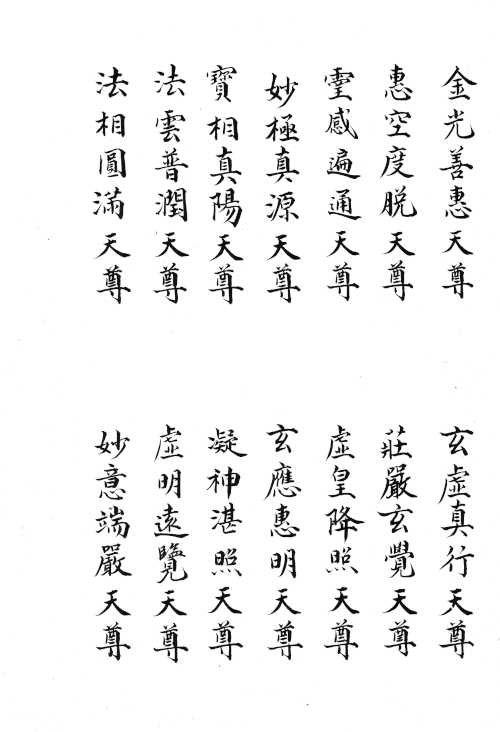 金光善惠天尊
玄虛真行天尊
惠空度脫天尊
莊嚴玄覺天尊
靈感遍通天尊
虛皇降照天尊
妙極真源天尊
玄應惠明天尊
寶相真陽天尊
凝神湛照天尊
法雲普潤天尊
虛明遠覽天尊
法相圓滿天尊
妙意端嚴天尊